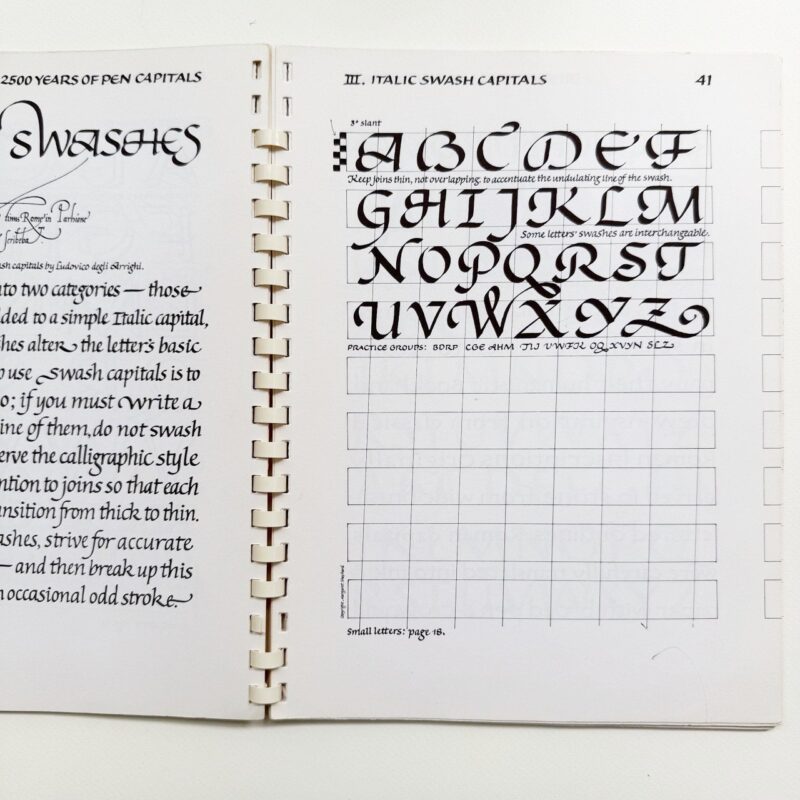 2500 YEARS OF PEN CAPITALS
SWASHES
tims Rome in Parhione
Scribeba
sh capitals by Ludovico degli Arrighi.
to two categories — those
ded to a simple Italic capital,
hes alter the letter's basic
o use swash capitals is to
o; if you must write a
ine of them, do not swash
erve the calligraphic style
ntion to joins so that each
nsition from thick to thin.
ashes, strive for accurate
— and then break up this
n occasional odd stroke.
III. ITALIC SWASH CAPITALS 41
3° slant
A B C D E F
Keep joins thin, not overlapping, to accentuate the undulating line of the swash.
G H I J K L M
Some letters' swashes are interchangeable.
N O P Q R S T
U V W X Y Z
PRACTICE GROUPS: BDRP CGE AHM TIJ UWFK OQ XVYN SLZ
Copyright, Margaret Shepherd
Small letters: page 18.